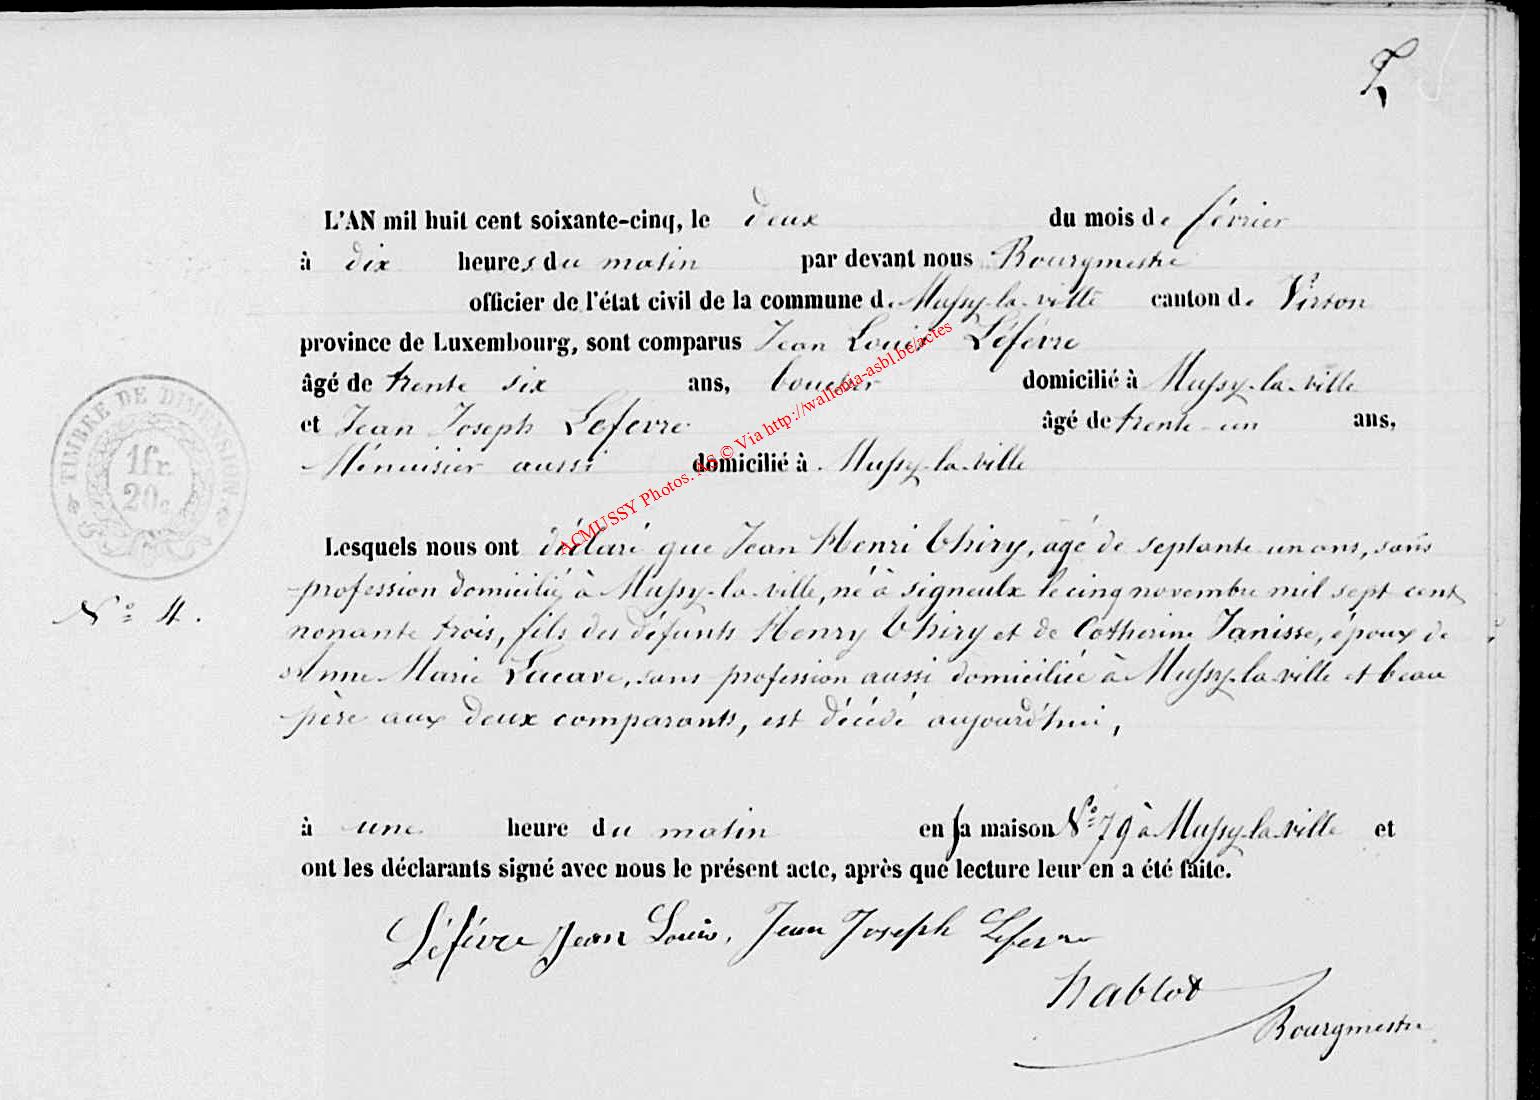 L'AN mil huit cent soixante-cinq, le deux du mois de février
à dix heures du matin par devant nous Bourgmestre
officier de l'état civil de la commune de Mussy-la-ville canton de Virton
province de Luxembourg, sont comparus Jean Louis Léfévre
âgé de trente six ans, boucher domicilié à Mussy-la-ville
et Jean Joseph Lefevre âgé de trente-un ans,
Ménuisier aussi domicilié à Mussy-la-ville
TIMBRE DE DIMENSION
1fr.
20c
ACMUSSY Photos. AS © Via http://wallonia-asbl.be/actes
Lesquels nous ont déclaré que Jean Henri Thiry, âgé de septante un ans, sans
profession domicilié à Mussy-la-ville, né à Signeulx le cinq novembre mil sept cent
Nº 4.
nonante trois, fils des défunts Henry Thiry et de Catherine Janisse, époux de
Anne Marie Lacave, sans profession aussi domiciliée à Mussy-la-ville et beau
père aux deux comparants, est décédé aujourd'hui,
à une heure du matin en sa maison Nº 79 à Mussy-la-ville et
ont les déclarants signé avec nous le présent acte, après que lecture leur en a été faite.
Léfévre Jean Louis. Jean Joseph Lefevre
Nablot
Bourgmestre